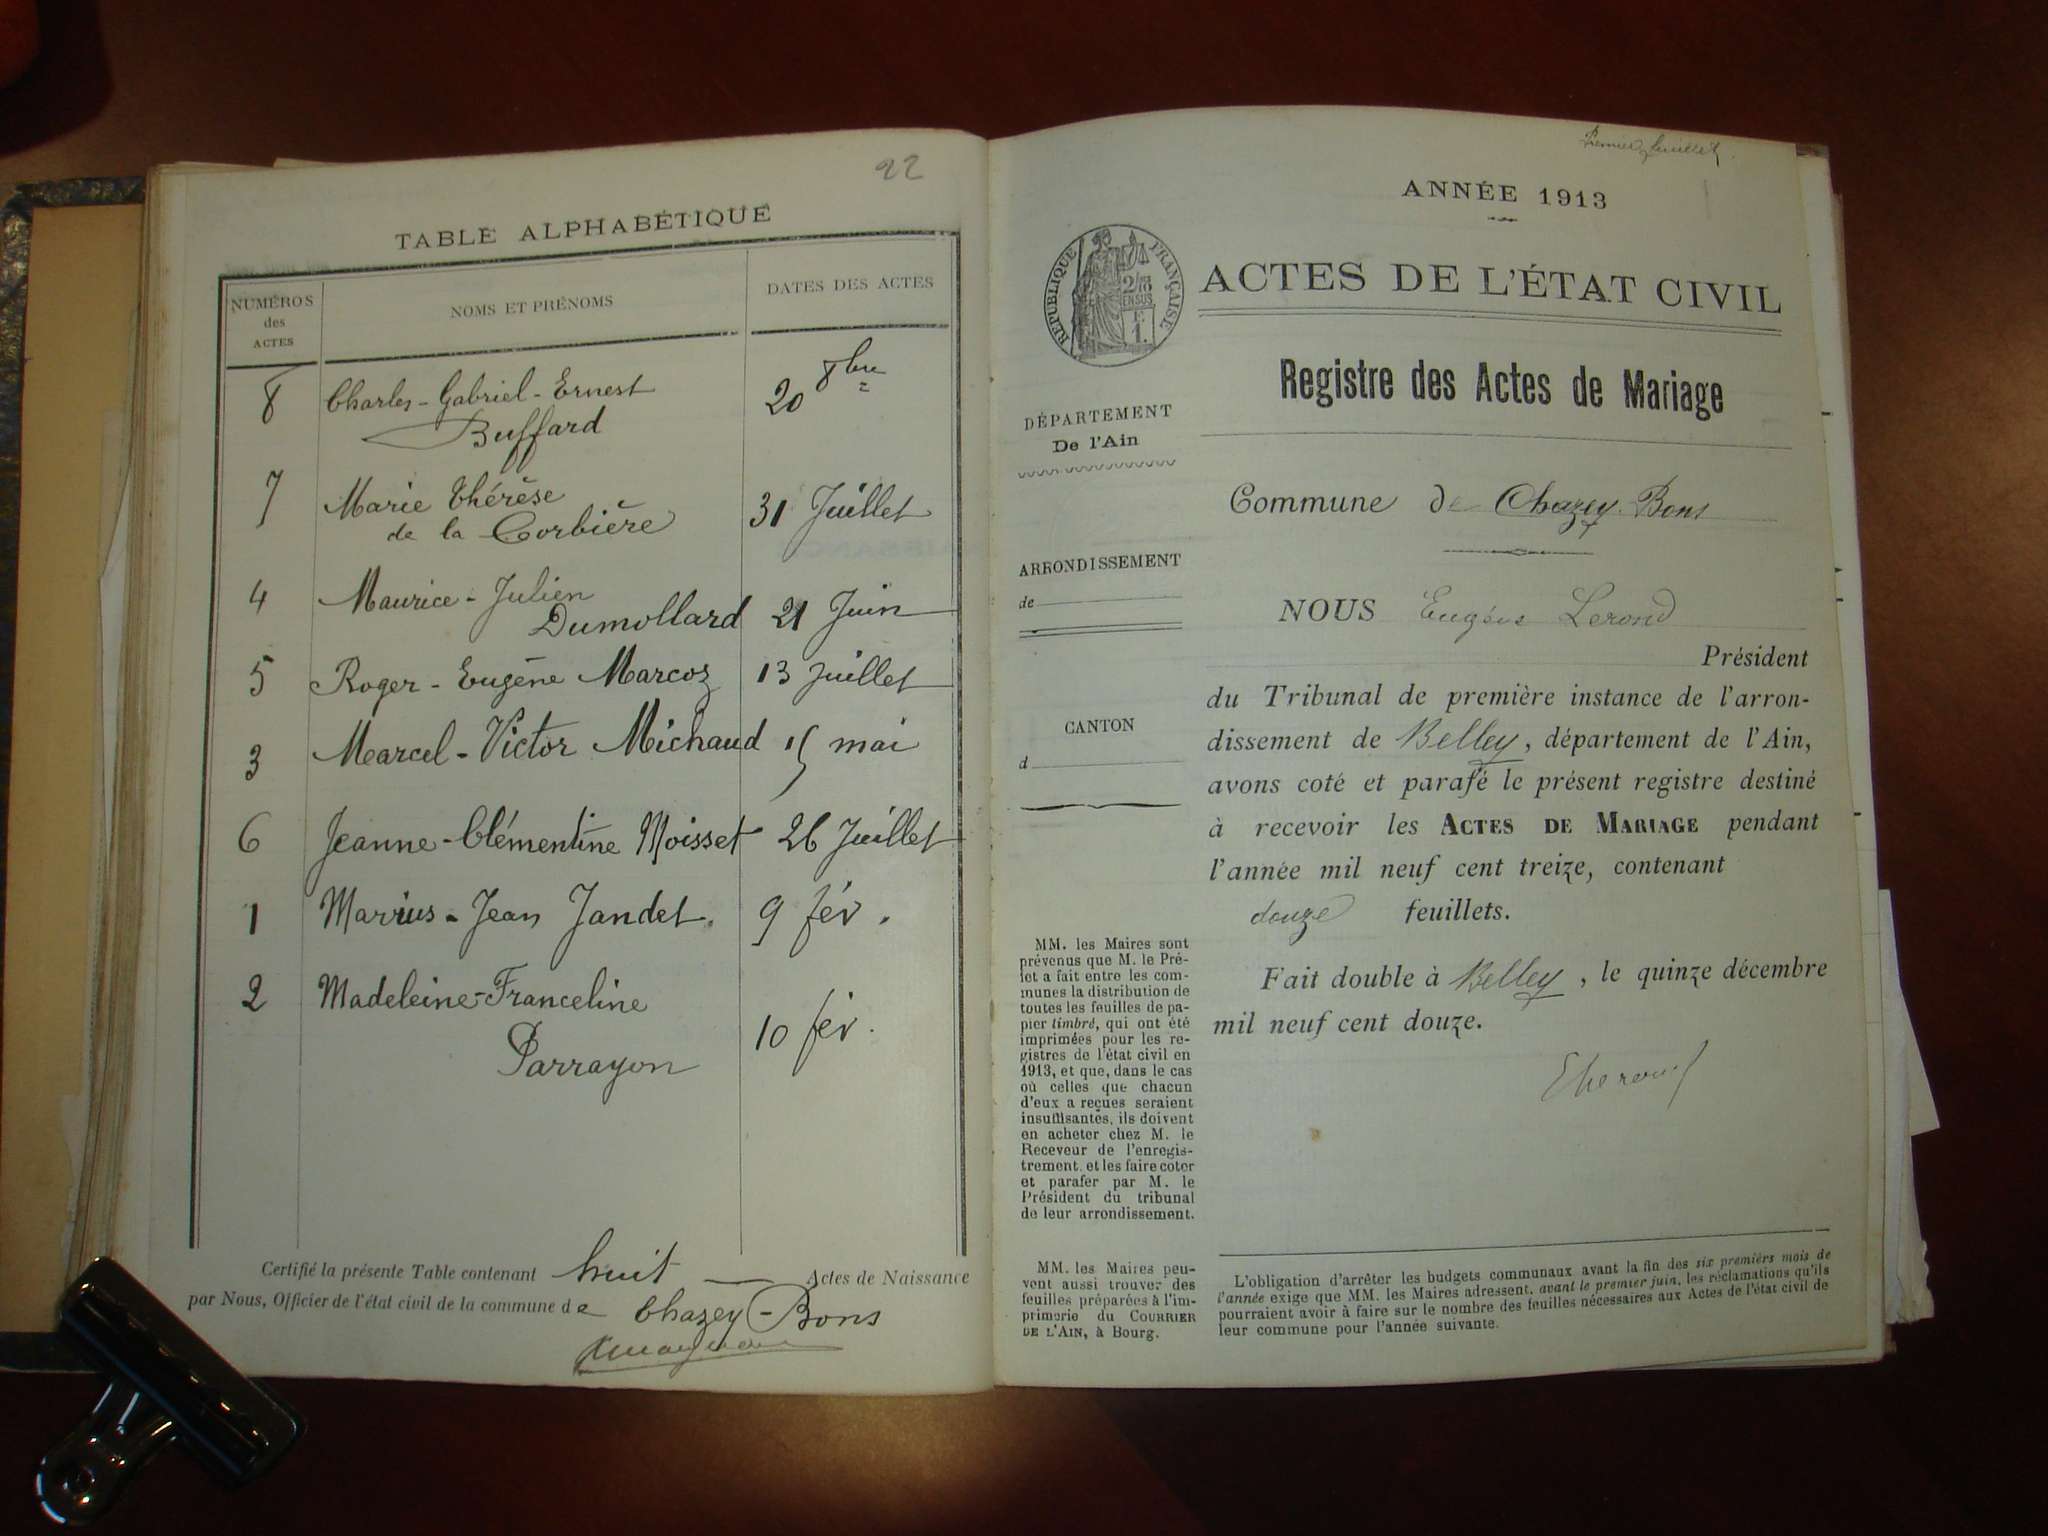 22
TABLE ALPHABÉTIQUE
NUMÉROS des ACTES
NOMS ET PRÉNOMS
DATES DES ACTES
8 Charles-Gabriel-Ernest 20 8bre
Buffard
7 Marie Thérèse 31 Juillet
de la Corbière
4 Maurice-Julien
Dumollard 21 Juin
5 Roger-Eugène Marcoz 13 Juillet
3 Marcel-Victor Michaud 15 mai
6 Jeanne-Clémentine Moisset 26 Juillet
1 Marius-Jean Jandet. 9 fév.
2 Madeleine-Franceline
Parrayon 10 fév.
Certifié la présente Table contenant huit — Actes de Naissance
par Nous, Officier de l'état civil de la commune de Chazey-Bons
Premier feuillet
ANNÉE 1913
RÉPUBLIQUE FRANÇAISE
2/10 EN SUS
F. 1.
ACTES DE L'ÉTAT CIVIL
Registre des Actes de Mariage
DÉPARTEMENT
De l'Ain
Commune de Chazey-Bons
ARRONDISSEMENT
de
NOUS Eugène Lerond
Président
du Tribunal de première instance de l'arron-
CANTON
d
dissement de Belley, département de l'Ain,
avons coté et parafé le présent registre destiné
à recevoir les ACTES DE MARIAGE pendant
l'année mil neuf cent treize, contenant
douze feuillets.
Fait double à Belley, le quinze décembre
mil neuf cent douze.
MM. les Maires sont
prévenus que M. le Pré-
fet a fait entre les com-
munes la distribution de
toutes les feuilles de pa-
pier timbré, qui ont été
imprimées pour les re-
gistres de l'état civil en
1913, et que, dans le cas
où celles que chacun
d'eux a reçues seraient
insuffisantes, ils doivent
en acheter chez M. le
Receveur de l'enregis-
trement, et les faire coter
et parafer par M. le
Président du tribunal
de leur arrondissement.
MM. les Maires peu-
vent aussi trouver des
feuilles préparées à l'im-
primerie du COURRIER
DE L'AIN, à Bourg.
L'obligation d'arrêter les budgets communaux avant la fin des six premiers mois de
l'année exige que MM. les Maires adressent, avant le premier juin, les réclamations qu'ils
pourraient avoir à faire sur le nombre des feuilles nécessaires aux Actes de l'état civil de
leur commune pour l'année suivante.